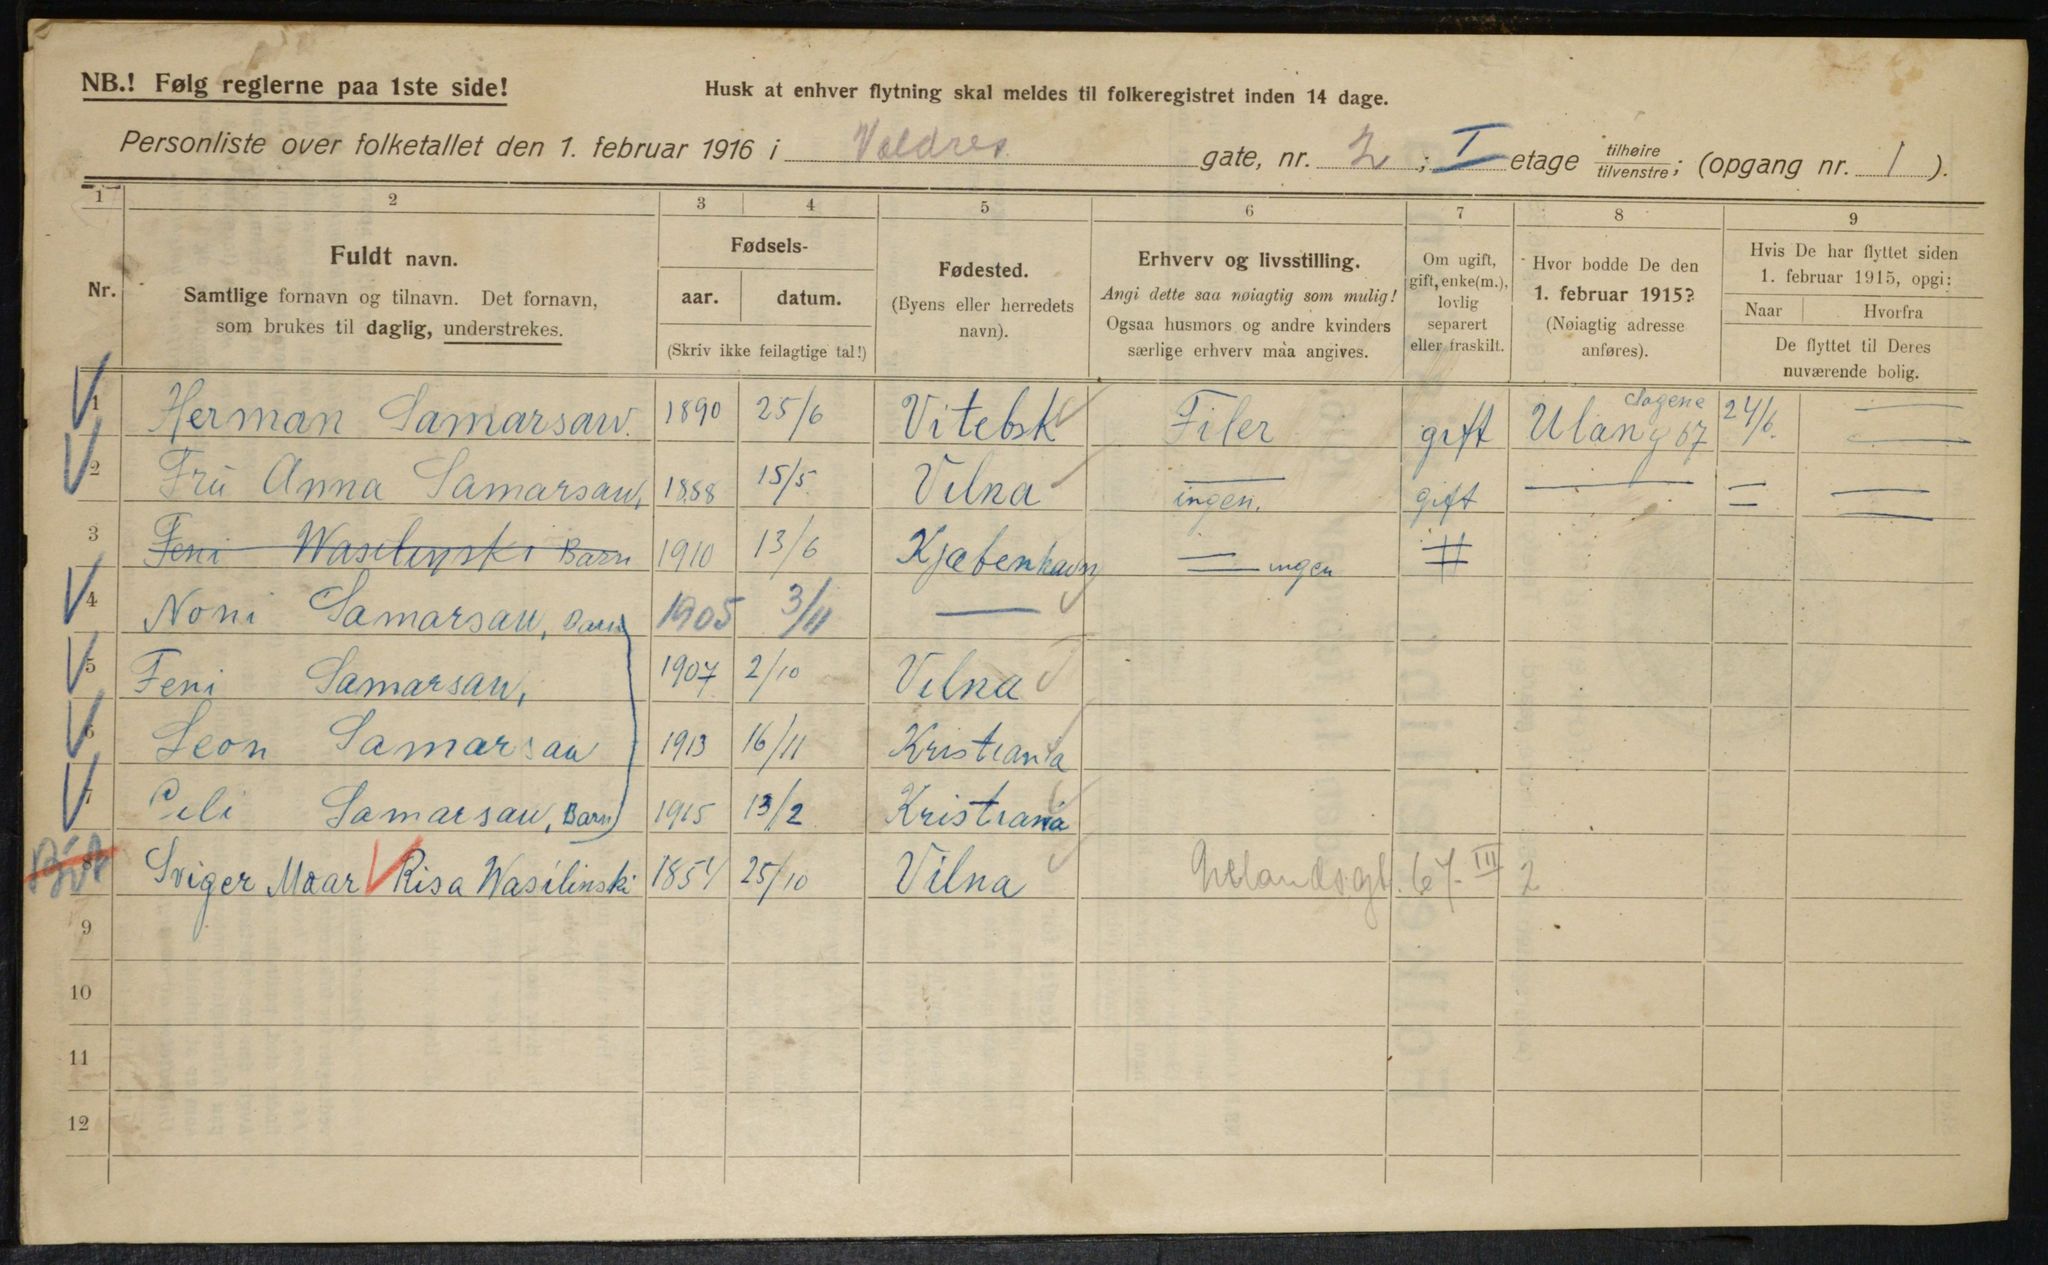 NB.! Følg reglerne paa 1ste side!
Husk at enhver flytning skal meldes til folkeregistret inden 14 dage.
Personliste over folketallet den 1. februar 1916 i Valdres gate, nr. 2 ; I etage tilhøire/tilvenstre; (opgang nr. 1 ).
1 2 3 4 5 6 7 8 9
Nr.
Fuldt navn.
Samtlige fornavn og tilnavn. Det fornavn,
som brukes til daglig, understrekes.
Fødsels-
aar. datum.
(Skriv ikke feilagtige tal!)
Fødested.
(Byens eller herredets
navn).
Erhverv og livsstilling.
Angi dette saa nøiagtig som mulig!
Ogsaa husmors og andre kvinders
særlige erhverv maa angives.
Om ugift,
gift, enke(m.),
lovlig
separert
eller fraskilt.
Hvor bodde De den
1. februar 1915?
(Nøiagtig adresse
anføres).
Hvis De har flyttet siden
1. februar 1915, opgi:
Naar Hvorfra
De flyttet til Deres
nuværende bolig.
1 Herman Samarsaw. 1890 25/6 Vitebsk Filer gift Sagene Ulang 67 24/6.
2 Fru Anna Samarsaw, 1888 15/5 Vilna ingen. gift
3 Feni Wasilinski Barn 1910 13/6 Kjøbenhavn ingen
4 Noni Samarsaw, Barn 1905 3/11
5 Feni Samarsaw, 1907 2/10 Vilna
6 Leon Samarsaw 1913 16/11 Kristiania
7 Cili Samarsaw, Barn 1915 13/2 Kristiania
8 Sviger Moar Risa Wasilinski 1854 25/10 Vilna 67 III 2
9
10
11
12